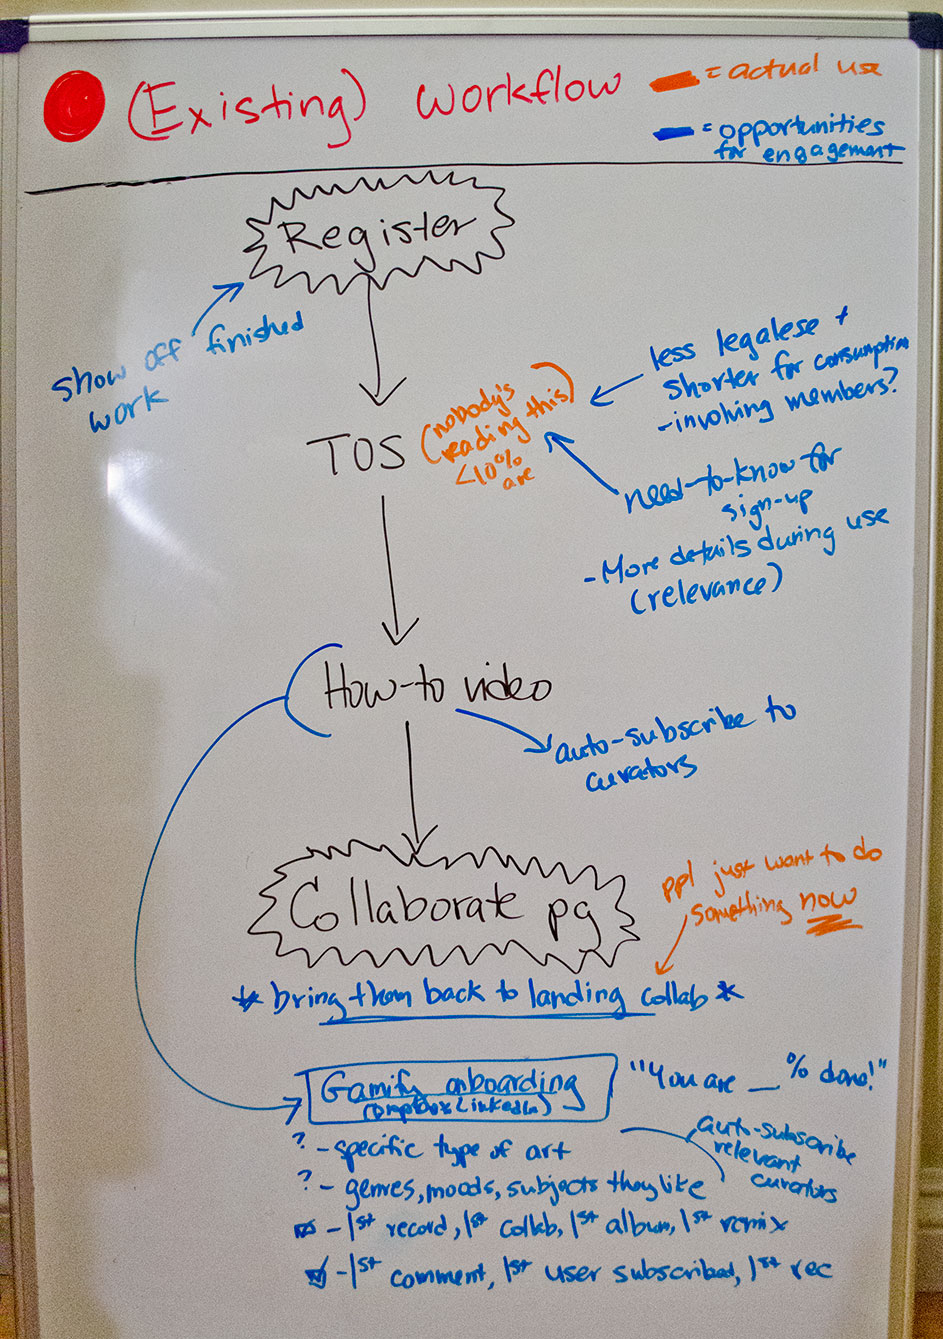 (Existing) workflow
= actual use
= opportunities
for engagement
Register
show off finished
work
less legalese +
shorter for consumption
- involving members?
TOS
(nobody's
reading this)
<10%
are
need-to-know for
sign-up
- More details during use
(relevance)
How-to video
auto-subscribe to
curators
Collaborate pg
ppl just want to do
something now
* bring them back to landing collab *
Gamify onboarding
(Dropbox LinkedIn)
"You are __ % done!"
auto-subscribe
relevant
curators
? - specific type of art
? - genres, moods, subjects they like
- 1st record, 1st collab, 1st album, 1st remix
- 1st comment, 1st user subscribed, 1st rec